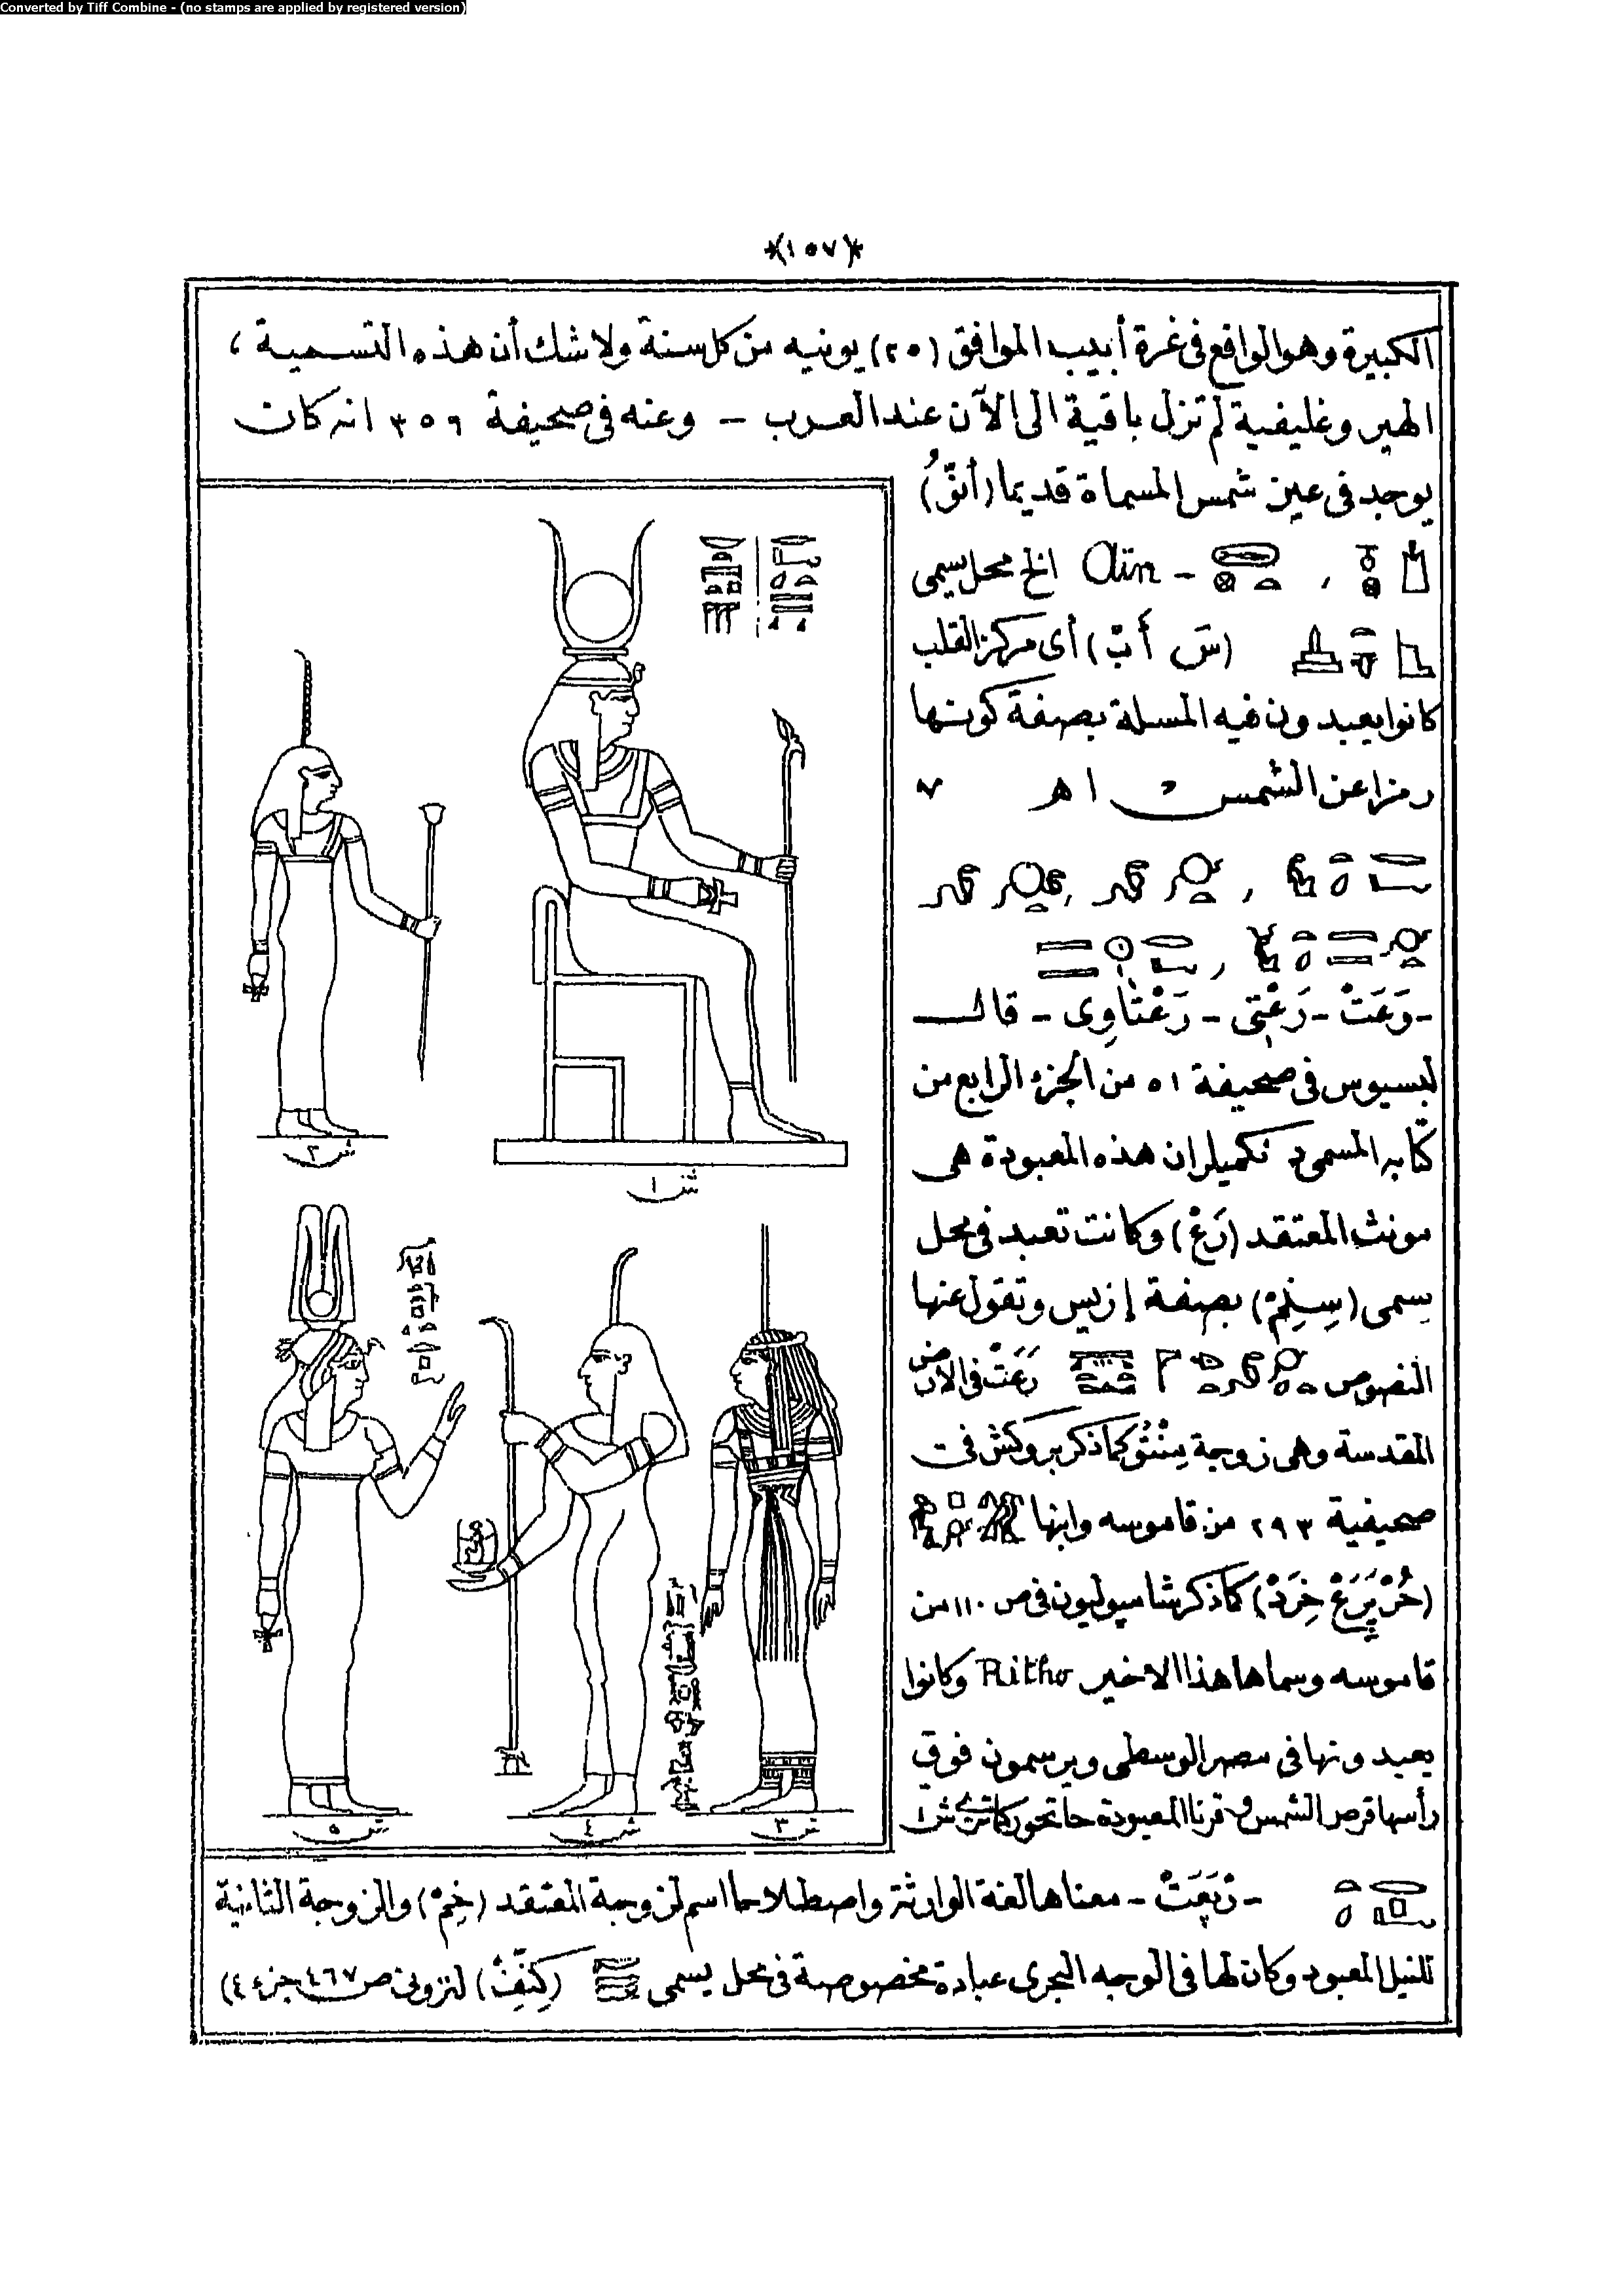 Converted by Tiff Combine - (no stamps are applied by registered version)
*(١٥٧)*
الكبيرة وهو الواقع فى غرة أبيب الموافق (٢٥) يونيه من كل سنة ولا شك أن هذه التسمية،
الهيروغليفية لم تزل باقية الى الآن عند العرب - وعنه فى صحيفة ٣٥٦ انه كان
يوجد فى عين شمس المسماة قديما (أنقُ)
- Aïn الخ محل يسمى
(سَ أَبْ) أى مركز القلب
كانوا يعبدون فيه المسلة بصفة كونها
رمزا عن الشمس ا ه
- رَعَتْ - رَعْتِى - رَعْتَاوِى - قال
لبسيوس فى صحيفة ٥١ من الجزء الرابع من
كتابه المسمى دنكميلر ان هذه المعبودة هى
مونث المعتقد (رَعْ) وكانت تعبد فى محل
يسمى (سِلِمْ) بصفة إزيس وتقول عنها
النصوص رَعَتْ فى الأرض
المقدسة وهى زوجة مِنْتُو كما ذكر بروكش فى
صحيفة ٢٩٣ من قاموسه وابنها
(حُرْ پَرَعْ خِرَدْ) كما ذكر شامپوليون فى ص ١١٠ من
قاموسه وسماها هذا الاخير Ritho وكانوا
يعبدونها فى مصر الوسطى ويرسمون فوق
رأسها قرص الشمس وقرنا المعبودة حاتحور كما ترى ش ١
ش ١
ش ٢
ش ٣
ش ٤
ش ٥
- رْپَعَتْ - معناها لغة الوارثة واصطلاحا اسم لزوجة المعتقد (خِمْ) والزوجة الثانية
للنيل المعبود وكان لها فى الوجه البحرى عبادة مخصوصة فى محل يسمى لنزونى ص ٤٦٧ جزء ٤)